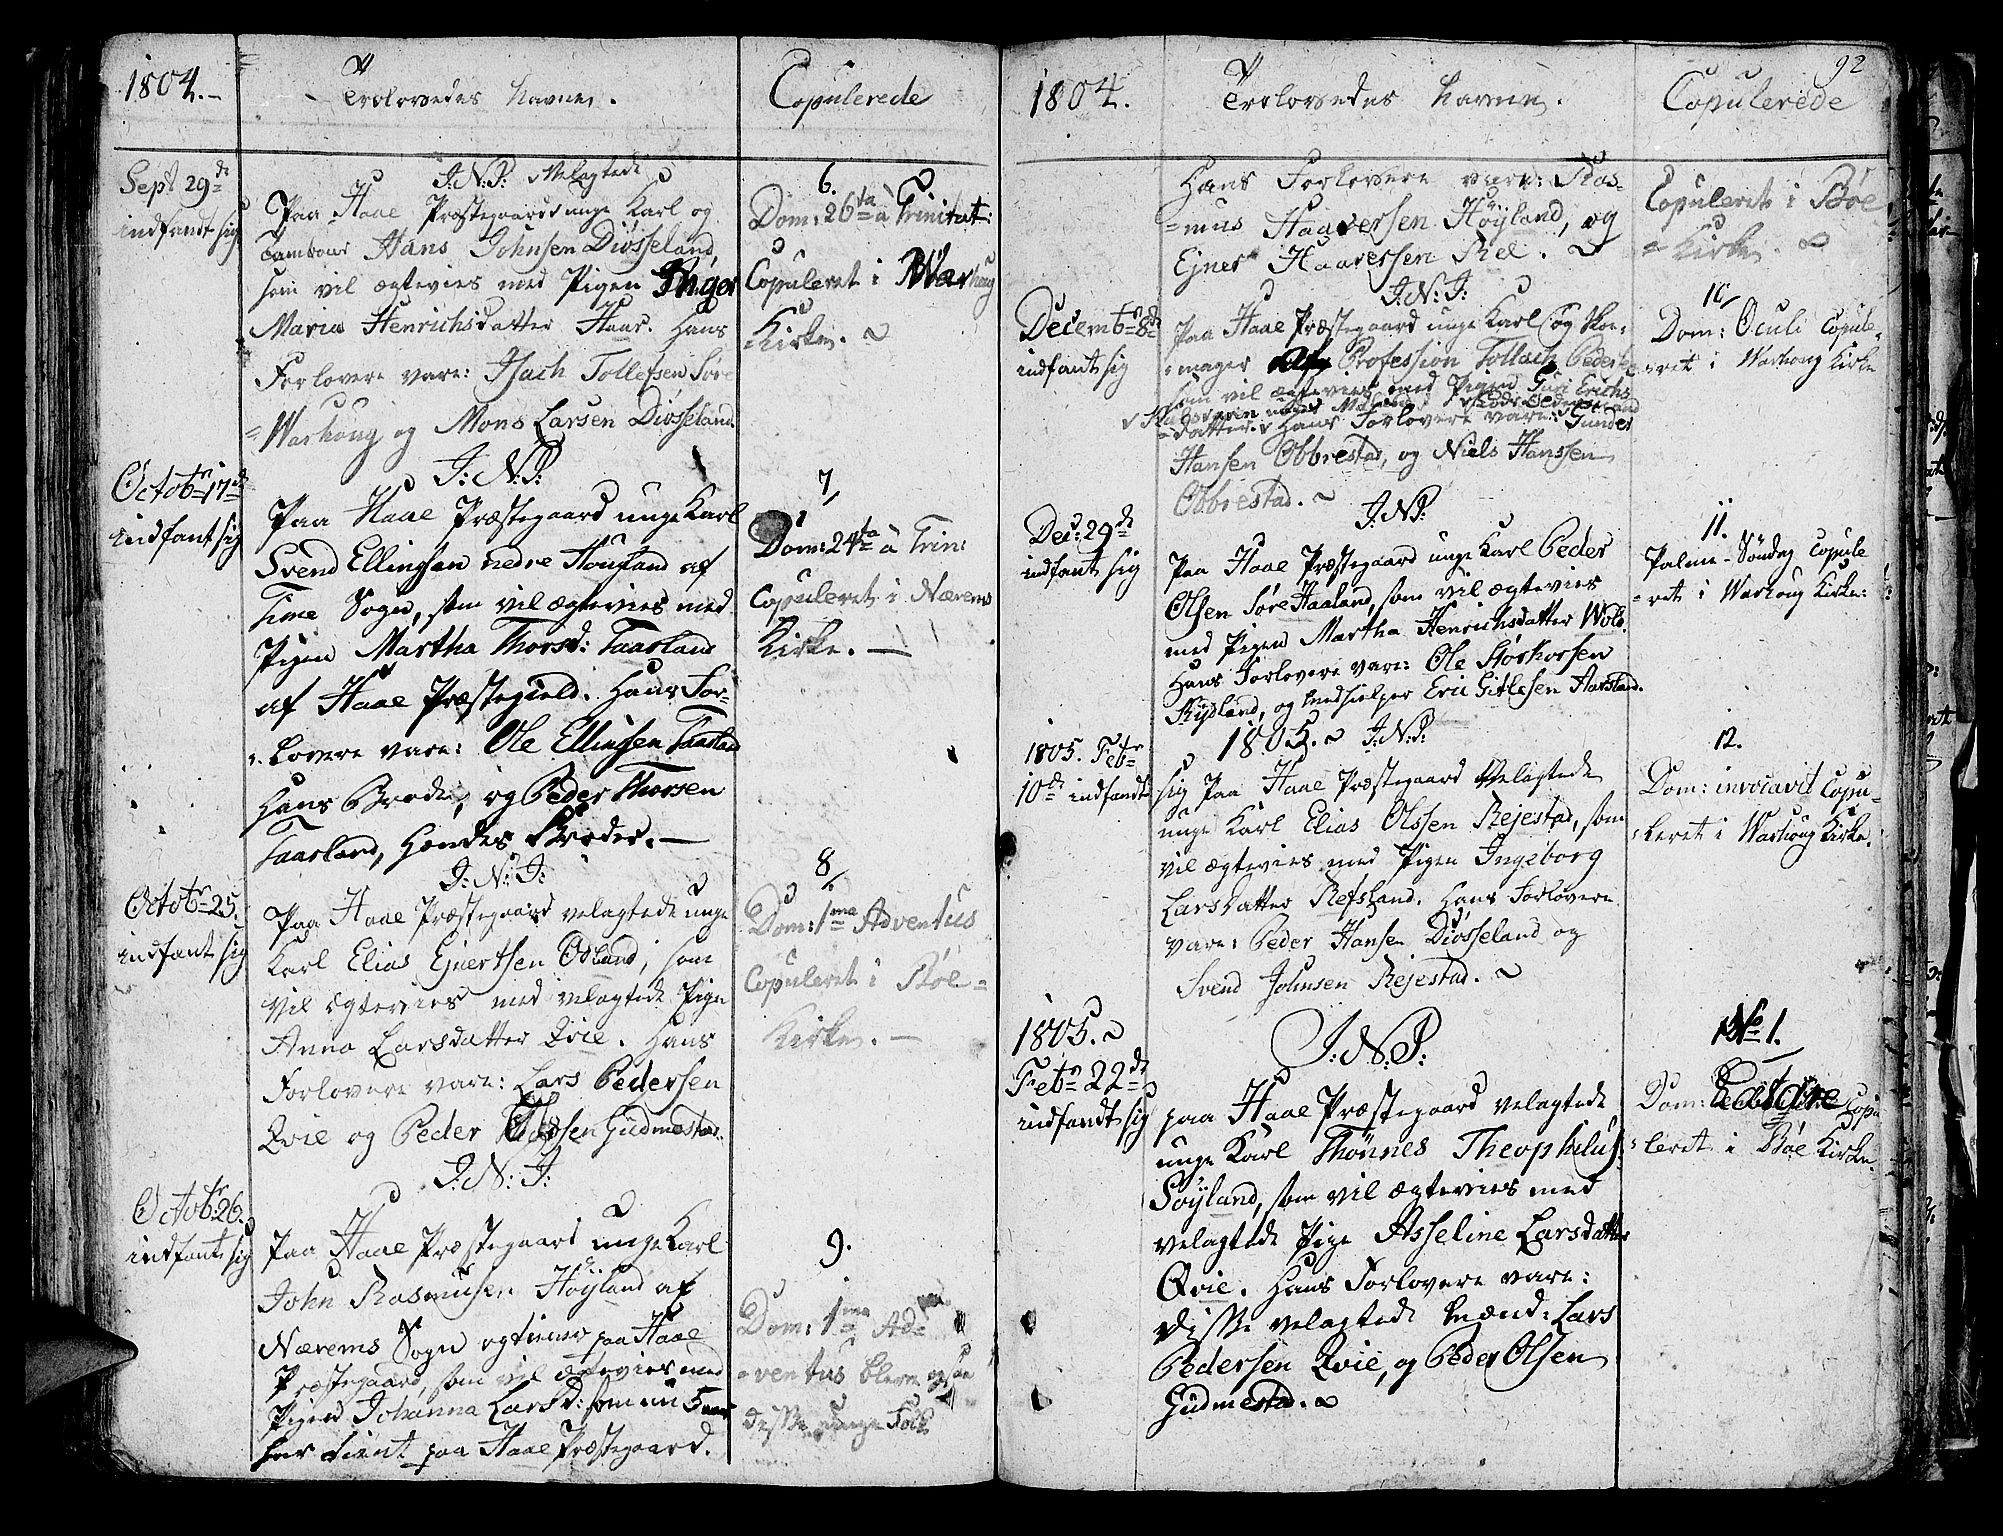 1804.
Trolovedes Navne.
Copulerede
Sept 29de
indfandt sig
J.N.J: Velagtede
Paa Haae Præstegaard unge Karl og
Tambour Hans Johnsen Diösseland,
som vil ægtevies med Pigen
Maria Henrichsdatter Haar. Hans
Forlovere vare: Isach Tollefsen Söre
Warhoug og Mons Larsen Diösseland.
6.
Dom: 26ta à Trinitat:
Copuleret i Warhoug
Kirke.
Octobr 17de
indfant sig
J:N:J:
Paa Haae Præstegaard unge Karl
Svend Ellingsen nedre Houland af
Time Sogn, som vil ægtevies med
Pigen Martha Thorsd: Taarland
af Haae Præstegield. Hans For-
lovere vare: Ole Ellingsen Taarland
Hans Broder, og Peder Thorsen
Taarland, Hendes Broder.
7
Dom: 24ta à Trin:
Copuleret i Nærems
Kirke.
Octobr 25.
indfant sig
J:N:J:
Paa Haae Præstegaard velagtede unge
Karl Elias Ejvertsen Ödland, som
vil ægtevies med velagtede Pige
Anna Larsdatter Qvie. Hans
Forlovere vare: Lars Pedersen
Qvie og Peder Gudmestad.
8
Dom: 1ma Adventus
Copuleret i Böe
Kirke.
Octobr 26.
indfant sig
J.N.J:
Paa Haae Præstegaard unge Karl
John Rasmusen Höyland af
Nærems Sogn og tiener paa Haae
Præstegaard, som vil ægtevies med
Pigen Johanna Larsd: som nu 5
har tient paa Haae Præstegaard.
9.
Dom: 1ma Ad-
ventus bleve
disse unge Folk
92
1804.
Trolovedes Navne.
Copulerede
Hans Forlovere vare: Ras-
mus Haaversen Höyland, og
Ejner Haaversen Ree.
Copuleret i Böe
Kirke.
Decembr 8de
indfant sig
J.N:J:
Paa Haae Præstegaard unge Karl og Skoe-
mager Profession Tollach Peders
som vil ægtevies med Pigen Guri Erichs
datter. Hans Forlovere vare: Gunder
Hansen Obbrestad, og Niels Hanssen
Obbrestad.
10
Dom: Oculi Copule-
ret i Warhoug Kirke
Dec: 29de
indfant sig
J.N.J:
Paa Haae Præstegaard unge Karl Peder
Olsen Söre Haaland, som vil ægtevies
med Pigen Martha Henrichsdatter Wold.
Hans Forlovere vare: Ole Storkorsen
Rydland, og Medhielper Eric Gitlesen Aarsland.
11.
Palme-Söndag Copule
ret i Warhoug Kirke:
1805. Febr
10de indfandt
1805. J.N.J:
sig Paa Haae Præstegaard Velagtede
unge Karl Elias Olssen Rejestad, som
vil ægtevies med Pigen Ingeborg
Larsdatter Refsland. Hans Forlovere
vare: Peder Hansen Diösseland og
Svend Johnsen Rejestad.
12.
Dom: invocavit Copu-
leret i Warhoug Kirke.
1805.
Febr 22de
indfandt sig
J.N.J:
paa Haae Præstegaard velagtede
unge Karl Thönnes Theophilus
Söyland, som vil ægtevies med
velagtede Pige Asseline Larsdatter
Qvie. Hans Forlovere vare:
disse velagtede Mænd: Lars
Pedersen Qvie, og Peder Olsen
Gudmestad.
No 1.
Dom: Copu
leret i Böe Kirke.